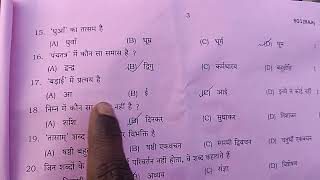 3
15. 'धुआँ' का तत्सम है
(A) धुवाँ (B) धूम्र (C) धूर्म (D) धूम
16. 'पंचतंत्र' में कौन सा समास है ?
(A) द्वन्द्व (B) द्विगु (C) कर्मधारय (D) बहुव्रीहि
17. 'बड़ाई' में प्रत्यय है
(A) आ (B) ई (C) आई (D) इनमें से कोई नहीं
18. निम्न में कौन सा नहीं है ?
(A) शशि (B) दिनकर (C) सुधाकर
19. 'तासाम्' विभक्ति है
(A) षष्ठी (B) षष्ठी एकवचन (C) सप्तमी द्विवचन (D) चतुर्थी एकवचन
20. जिन शब्दों के परिवर्तन नहीं होता, वे शब्द कहलाते हैं
(B) अव्यय (C) संज्ञा (D) विशेषण